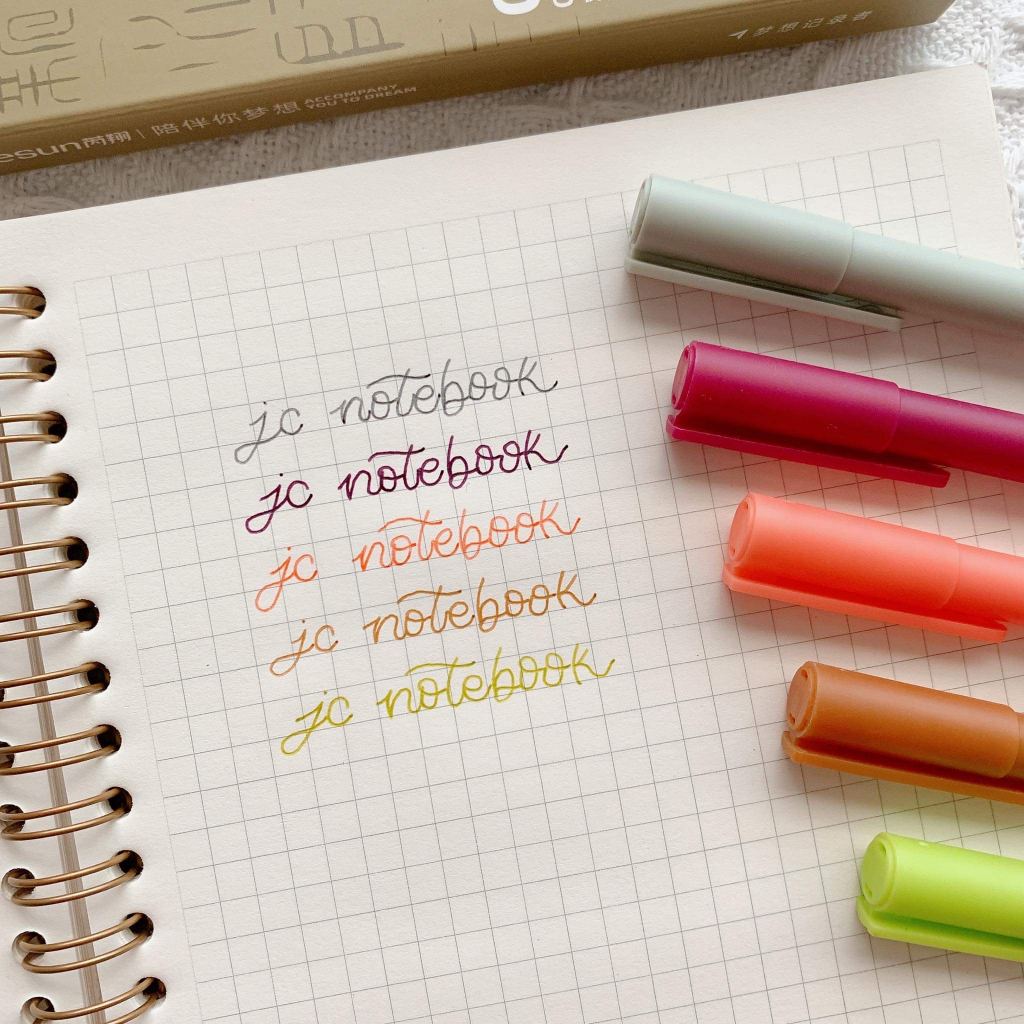 梦想记录者
esun芮翔 | 陪伴你梦想 ACCOMPANY
YOU TO DREAM
jc notebook
jc notebook
jc notebook
jc notebook
jc notebook